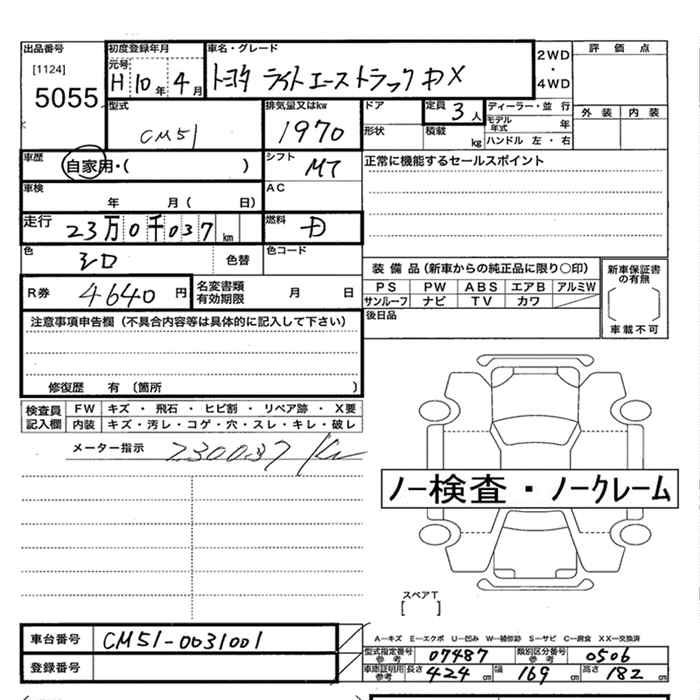 出品番号 初度登録年月 車名・グレード 2WD・4WD 評価点
[1124] 元号 H10年4月 トヨタ ライトエーストラック DX
5055
型式 CM51 排気量又はkw 1970 ドア 定員 3人 ディーラー・並行 外装 内装
形状 積載 kg モデル年式 年
ハンドル 左・右
車歴 自家用・( ) シフト MT 正常に機能するセールスポイント
車検 年 月( 日) AC
走行 23万0千037km 燃料 D
色 シロ 色替 色コード
装備品(新車からの純正品に限り○印) 新車保証書の有無
R券 4640円 名変書類有効期限 月 日 PS PW ABS エアB アルミW
サンルーフ ナビ TV カワ
注意事項申告欄(不具合内容等は具体的に記入して下さい) 後日品 車載不可
修復歴 有 (箇所 )
検査員記入欄 FW キズ・飛石・ヒビ割・リペア跡・X要
内装 キズ・汚レ・コゲ・穴・スレ・キレ・破レ
メーター指示 230037 Km
ノー検査・ノークレーム
スペアT
[ ]
車台番号 CM51-0031001 A―キズ E―エクボ U―凹み W―補修跡 S―サビ C―腐食 XX―交換済
登録番号 型式指定番号参考 07487 類別区分番号参考 0506
車庫証明用参考 長さ 424cm 幅 169cm 高さ 182cm